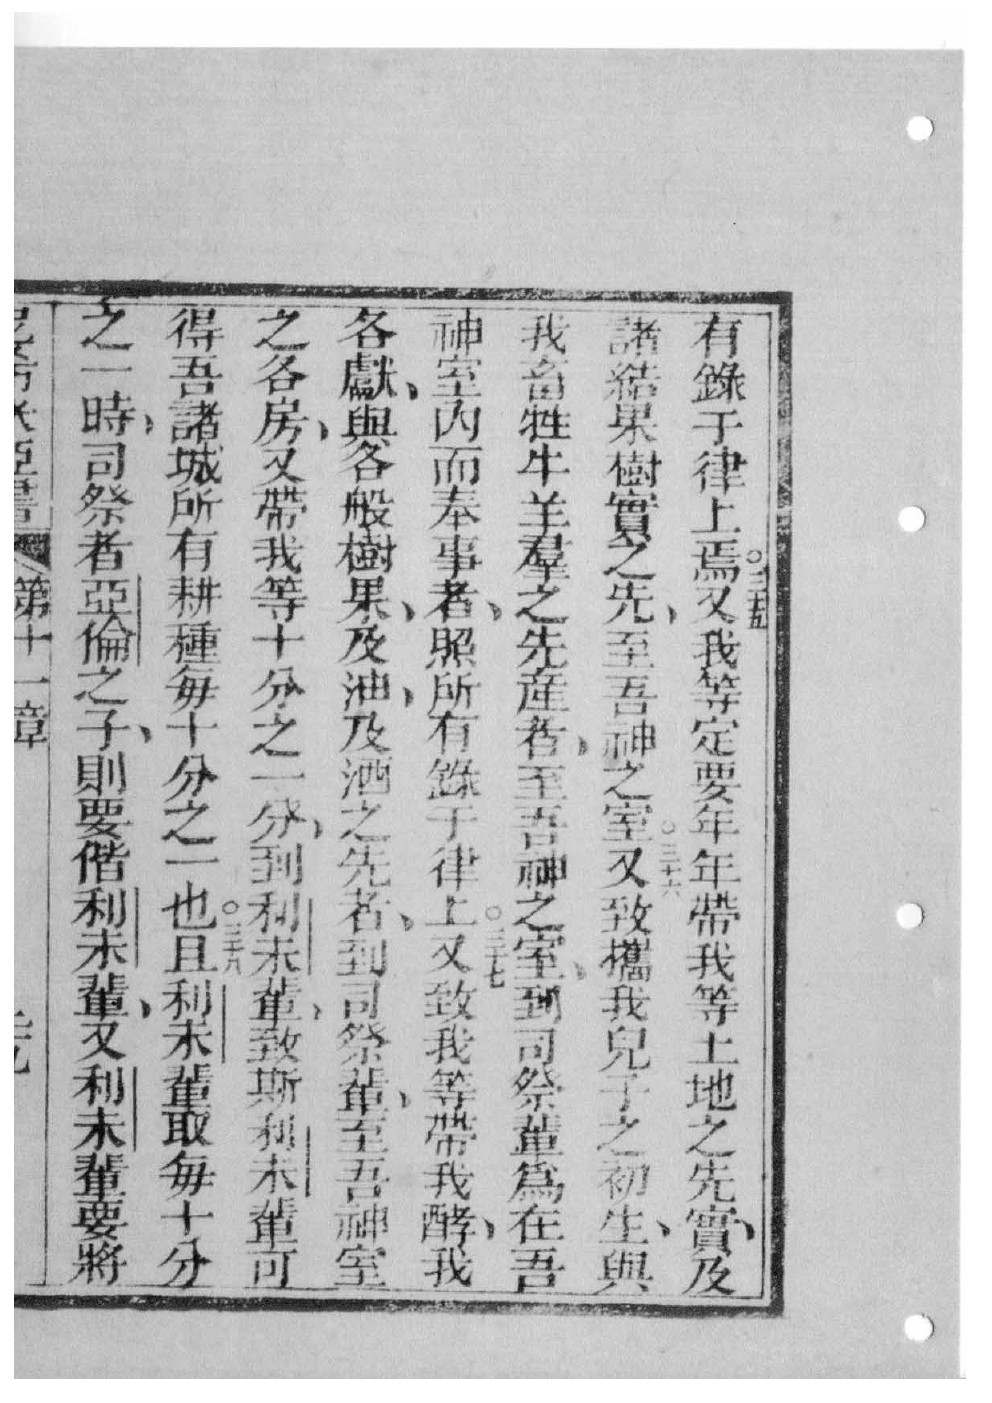 有錄于律上焉○三十五又我等定要年年帶我等土地之先實、及
諸結果樹實之先、至吾神之室○三十六又致攜我兒子之初生、與
我畜牲牛羊羣之先産者、至吾神之室、到司祭輩爲在吾
神室內而奉事者、照所有錄于律上○三十七又致我等帶我酵、我
各獻、與各般樹果、及油、及酒之先者、到司祭輩、至吾神室
之各房、又帶我等十分之一分、到利未輩、致斯利未輩可
得吾諸城所有耕種每十分之一也○三十八且利未輩取每十分
之一時、司祭者亞倫之子、則要偕利未輩、又利未輩要將
第十一章